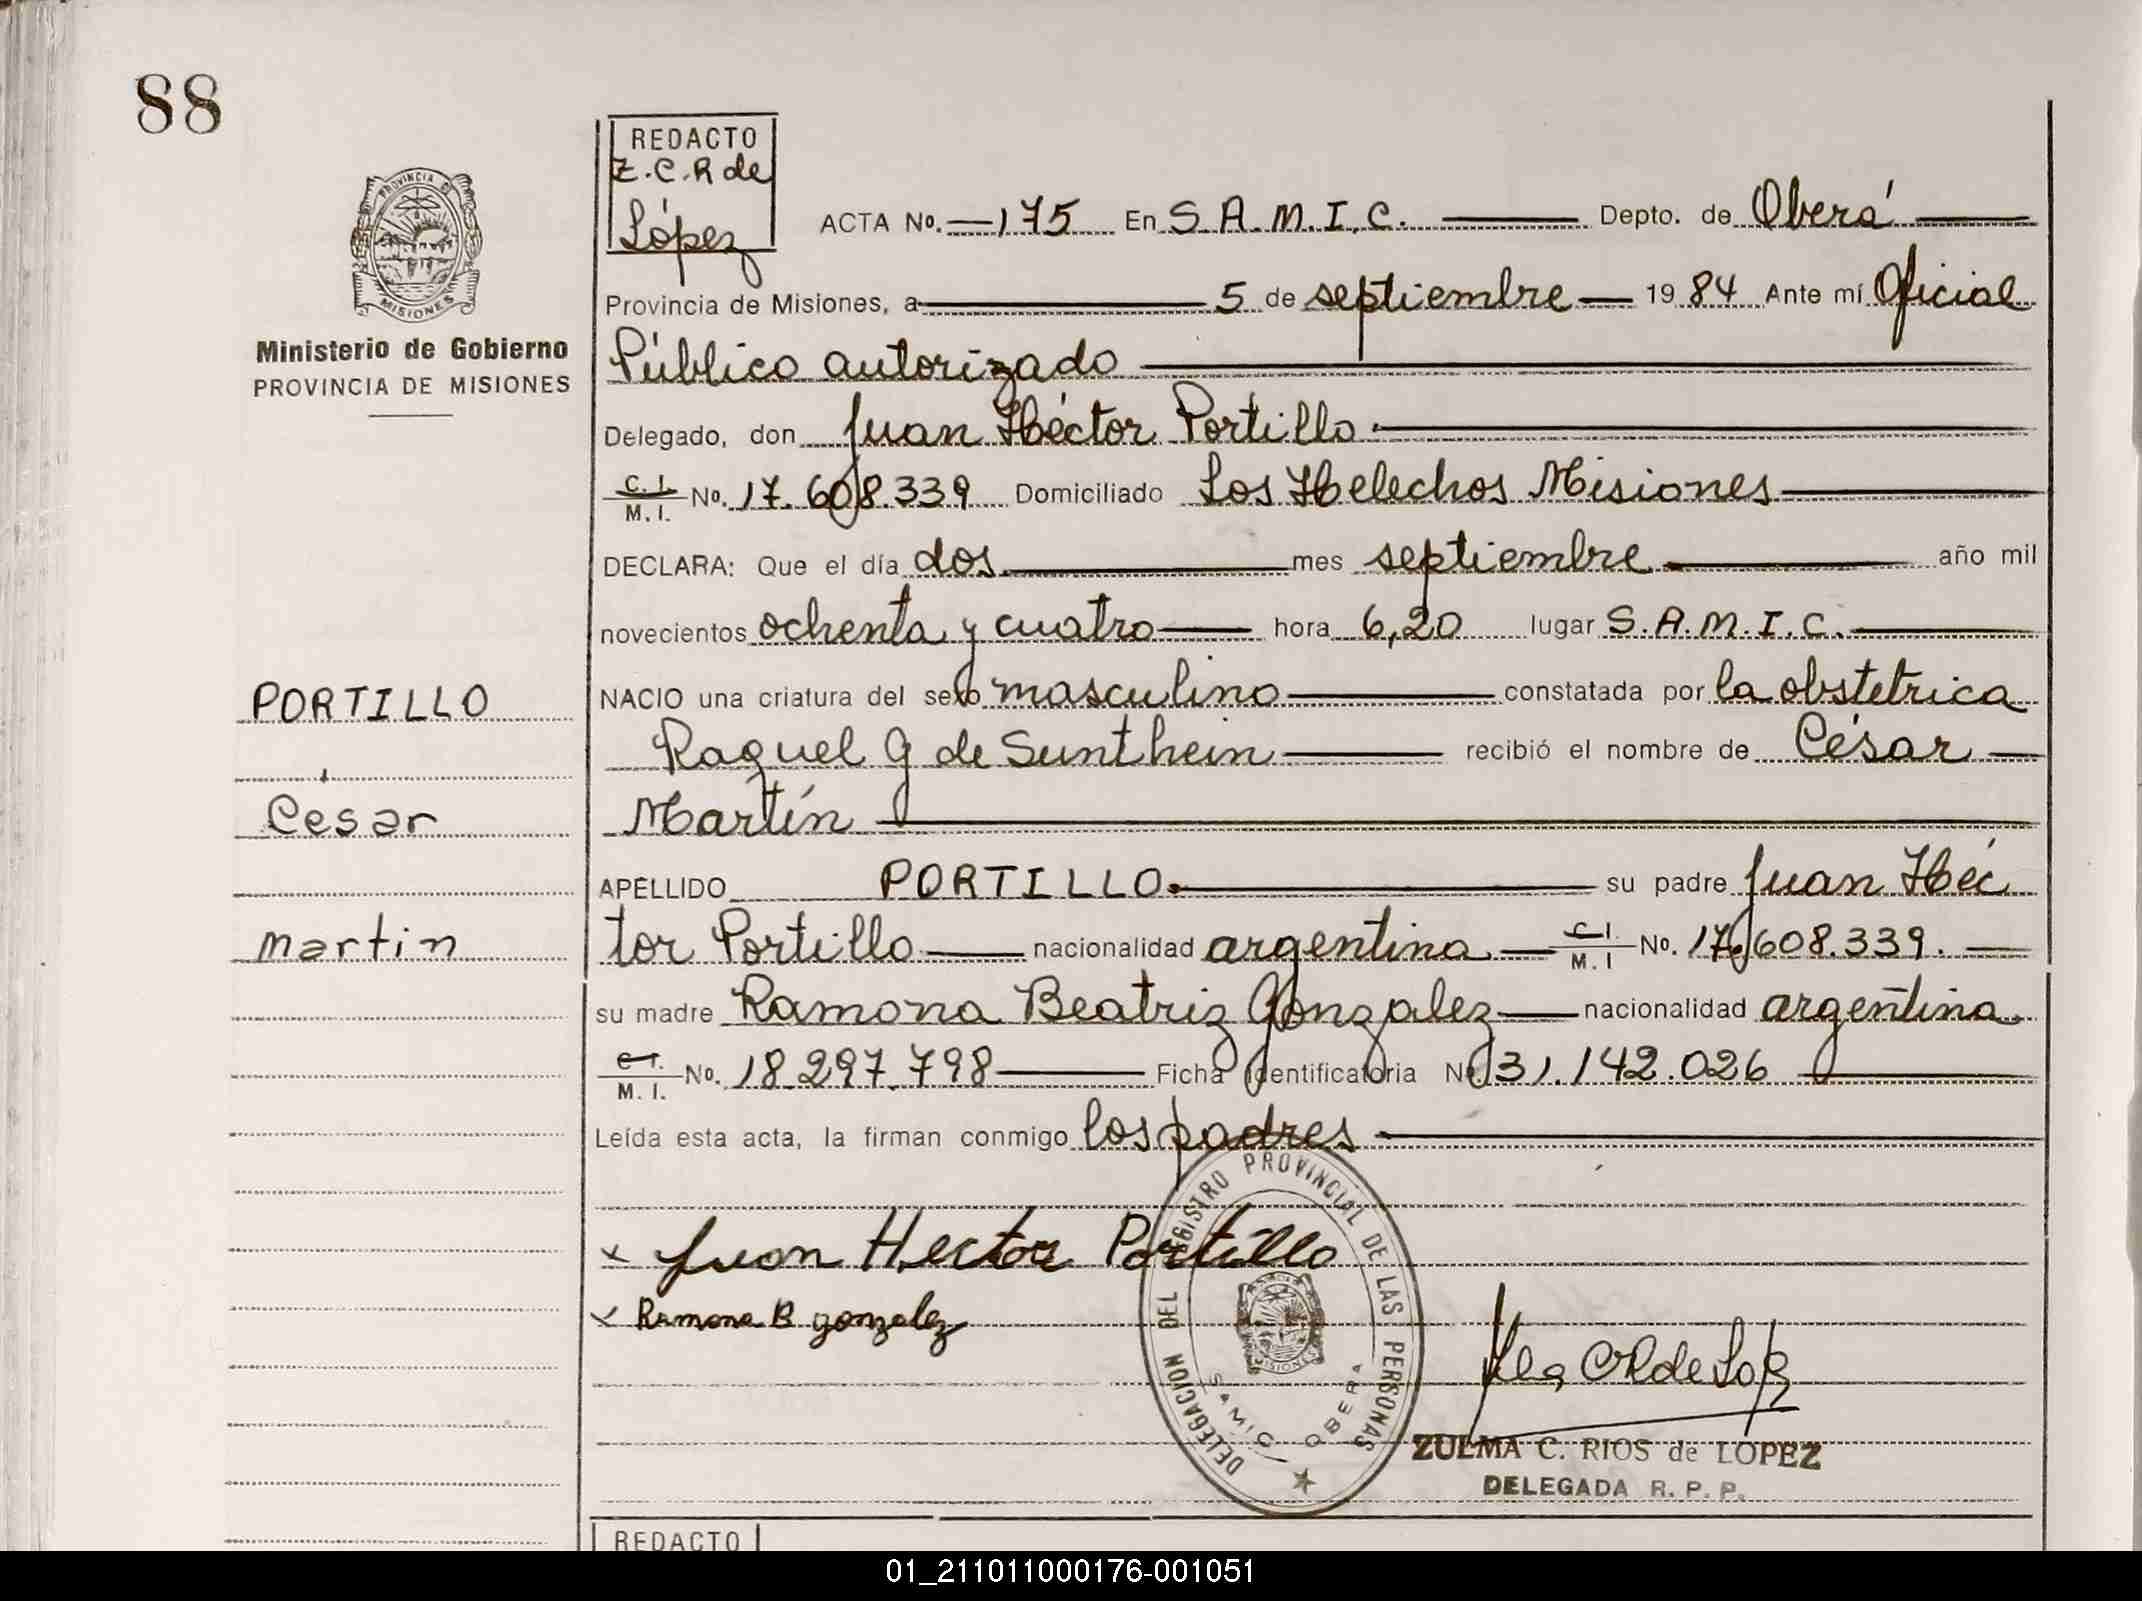 88
REDACTO
Z.C.R de
López
ACTA No. 175 En S.A.M.I.C. Depto. de Oberá
Provincia de Misiones, a 5 de septiembre 1984 Ante mí Oficial
Público autorizado
Delegado, don Juan Héctor Portillo
C.I. M.I. No. 17.608.339 Domiciliado Los Helechos Misiones
DECLARA: Que el día dos mes septiembre año mil
novecientos ochenta y cuatro hora 6,20 lugar S.A.M.I.C.
NACIO una criatura del sexo masculino constatada por la obstetrica
Raquel G de Sunthein recibió el nombre de César
Martín
APELLIDO PORTILLO. su padre Juan Héc
tor Portillo nacionalidad argentina C.I. M.I No. 17.608.339.
su madre Ramona Beatriz Gonzalez nacionalidad argentina
C.I. M.I. No. 18.297.798 Ficha Identificatoria No 31.142.026
Leída esta acta, la firman conmigo los padres
x Juan Hector Portillo
x Ramona B gonzalez
DELEGACION DEL REGISTRO PROVINCIAL DE LAS PERSONAS
MISIONES
SAMIC OBERA
ZULMA C. RIOS de LOPEZ
DELEGADA R. P. P.
REDACTO
PROVINCIA DE
MISIONES
Ministerio de Gobierno
PROVINCIA DE MISIONES
PORTILLO
César
martin
01_211011000176-001051